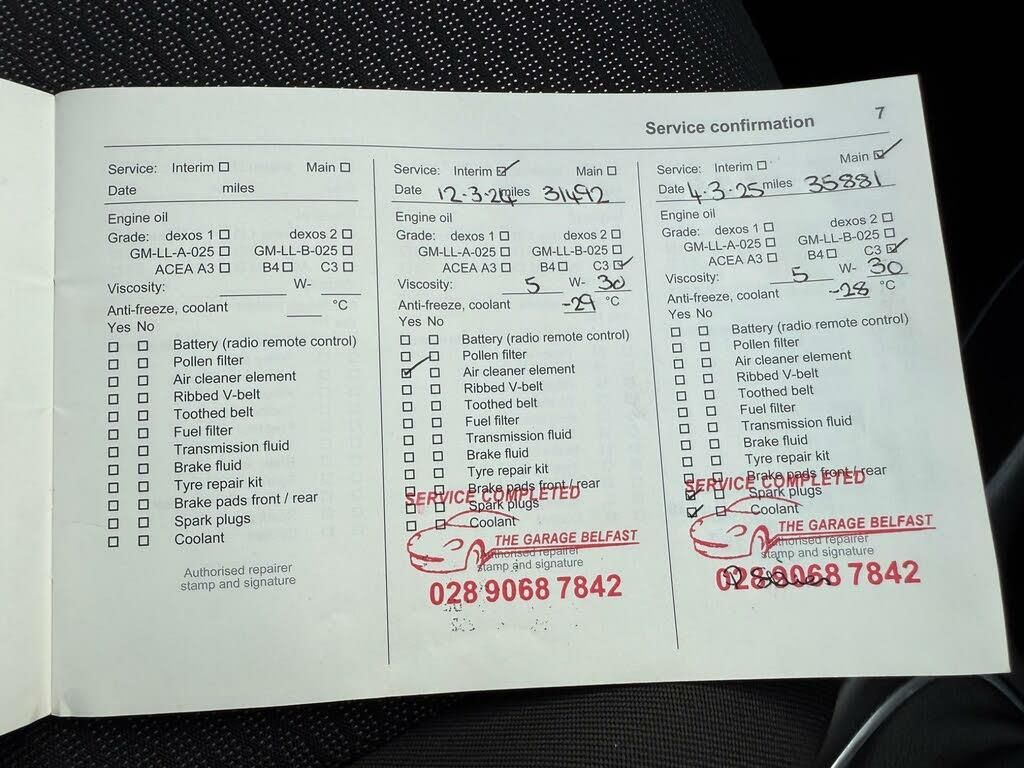 7
Service confirmation
Service: Interim Main
Date miles
Engine oil
Grade: dexos 1 dexos 2
GM-LL-A-025 GM-LL-B-025
ACEA A3 B4 C3
Viscosity: W-
Anti-freeze, coolant °C
Yes No
Battery (radio remote control)
Pollen filter
Air cleaner element
Ribbed V-belt
Toothed belt
Fuel filter
Transmission fluid
Brake fluid
Tyre repair kit
Brake pads front / rear
Spark plugs
Coolant
Authorised repairer
stamp and signature
Service: Interim Main
Date 12-3-24 miles 31492
Engine oil
Grade: dexos 1 dexos 2
GM-LL-A-025 GM-LL-B-025
ACEA A3 B4 C3
Viscosity: 5 W- 30
Anti-freeze, coolant -29 °C
Yes No
Battery (radio remote control)
Pollen filter
Air cleaner element
Ribbed V-belt
Toothed belt
Fuel filter
Transmission fluid
Brake fluid
Tyre repair kit
Brake pads front / rear
SERVICE COMPLETED
Spark plugs
Coolant
THE GARAGE BELFAST
Authorised repairer
stamp and signature
028 9068 7842
Service: Interim Main
Date 4-3-25 miles 35881
Engine oil
Grade: dexos 1 dexos 2
GM-LL-A-025 GM-LL-B-025
ACEA A3 B4 C3
Viscosity: 5 W- 30
Anti-freeze, coolant -28 °C
Yes No
Battery (radio remote control)
Pollen filter
Air cleaner element
Ribbed V-belt
Toothed belt
Fuel filter
Transmission fluid
Brake fluid
Tyre repair kit
Brake pads front / rear
SERVICE COMPLETED
Spark plugs
Coolant
THE GARAGE BELFAST
Authorised repairer
stamp and signature
028 9068 7842